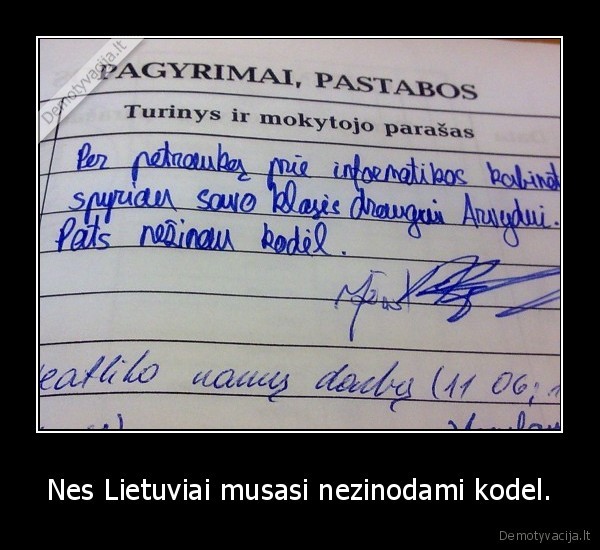 Demotyvacija.lt
PAGYRIMAI, PASTABOS
Turinys ir mokytojo parašas
Per petraukę prie informatikos kabinet
spyriau savo klasės draugui Arvydui.
Pats nežinau kodėl.
eatliko namų darbų (11 06;
Nes Lietuviai musasi nezinodami kodel.
Demotyvacija.lt